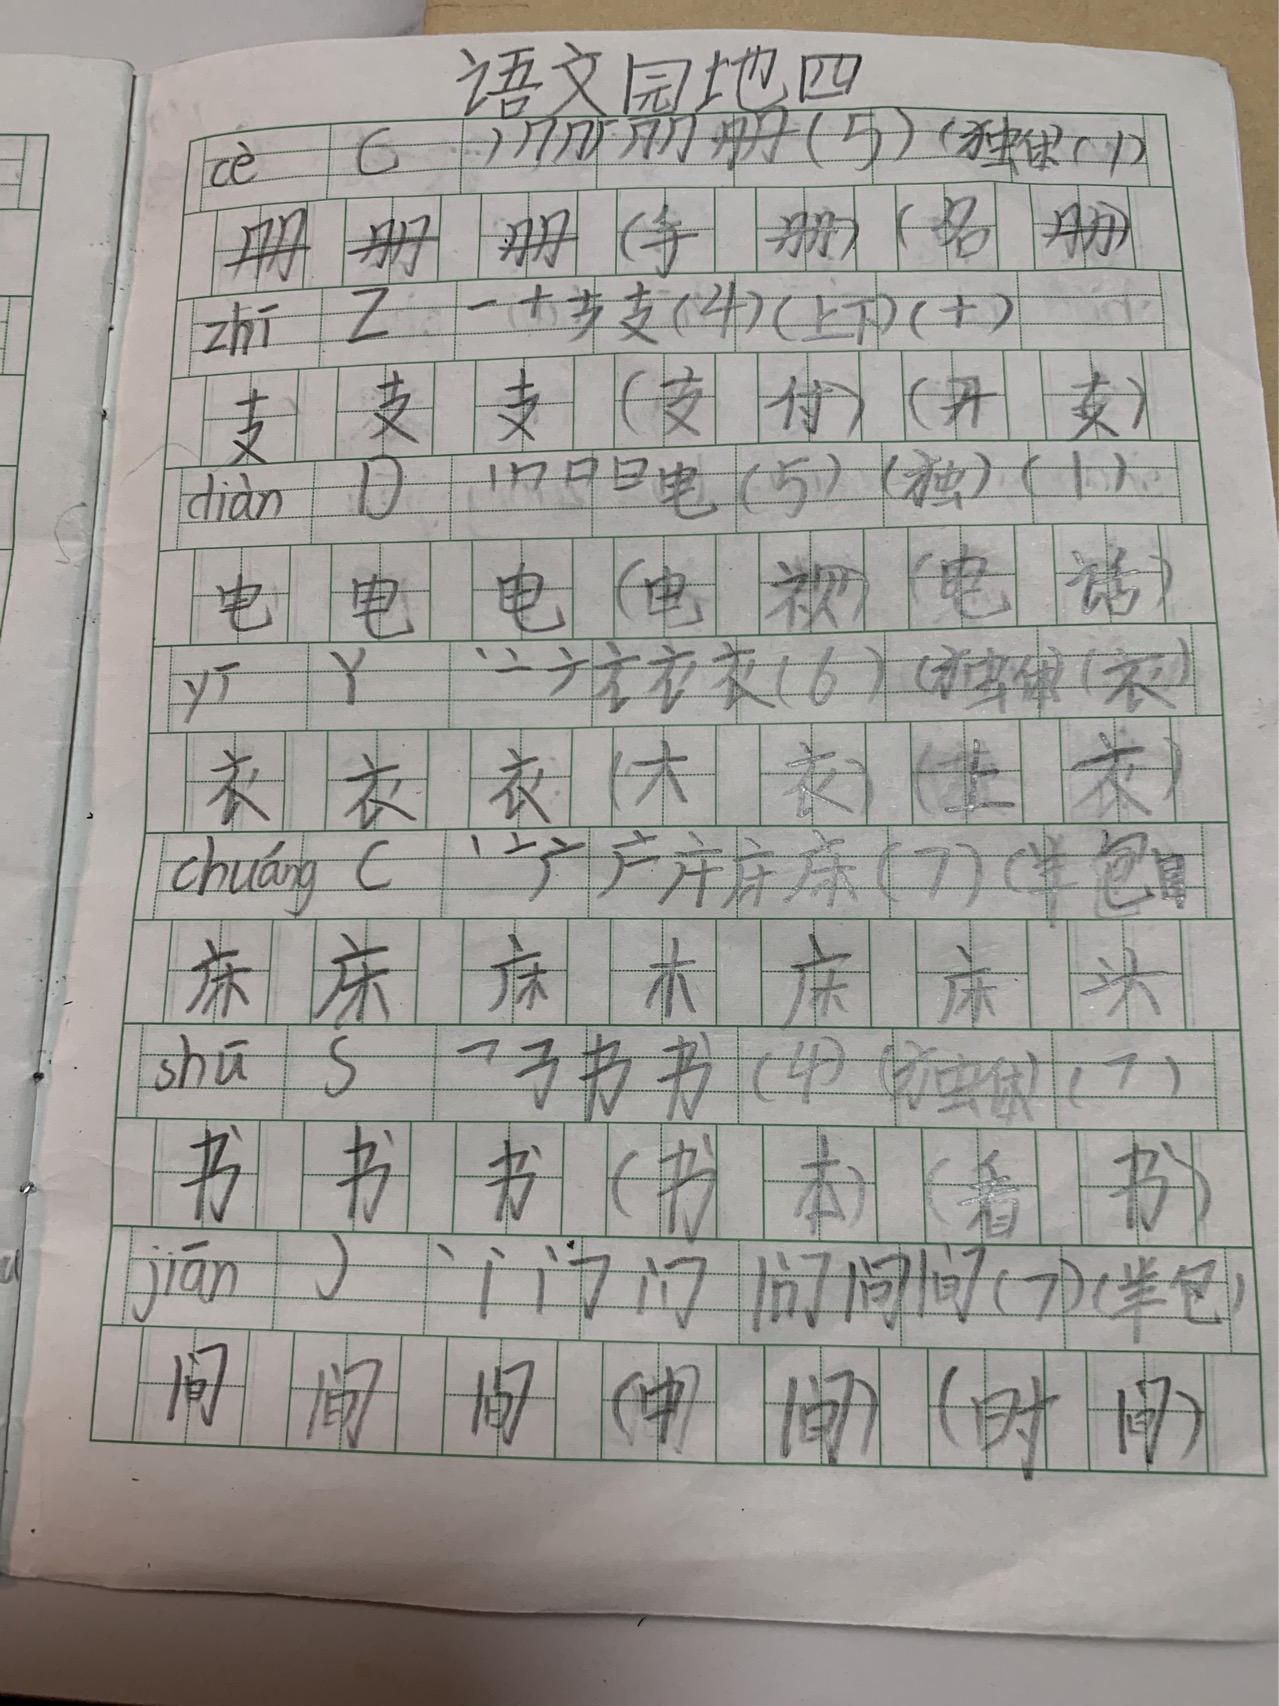 语文园地四
cè C 册(5)(独体)(丿)
册 册 册 (手 册)(名 册)
zhī Z 一 十 支 支(4)(上下)(十)
支 支 支 (支 付)(开 支)
diàn D 丨 冂 日 日 电 (5)(独)(丨)
电 电 电 (电 视)(电 话)
yī Y 丶 亠 衣 衣 衣(6)(独体)(衣)
衣 衣 衣 (大 衣)(上 衣)
chuáng C 丶 亠 广 床 床(7)(半包
床 床 床 木 床 床 头
shū S 乛 书 书 (4)(独体)(乛)
书 书 书 (书 本)(看 书)
jiān J 丶 丨 门 问 间 间(7)(半包)
间 间 间 (中 间)(时 间)